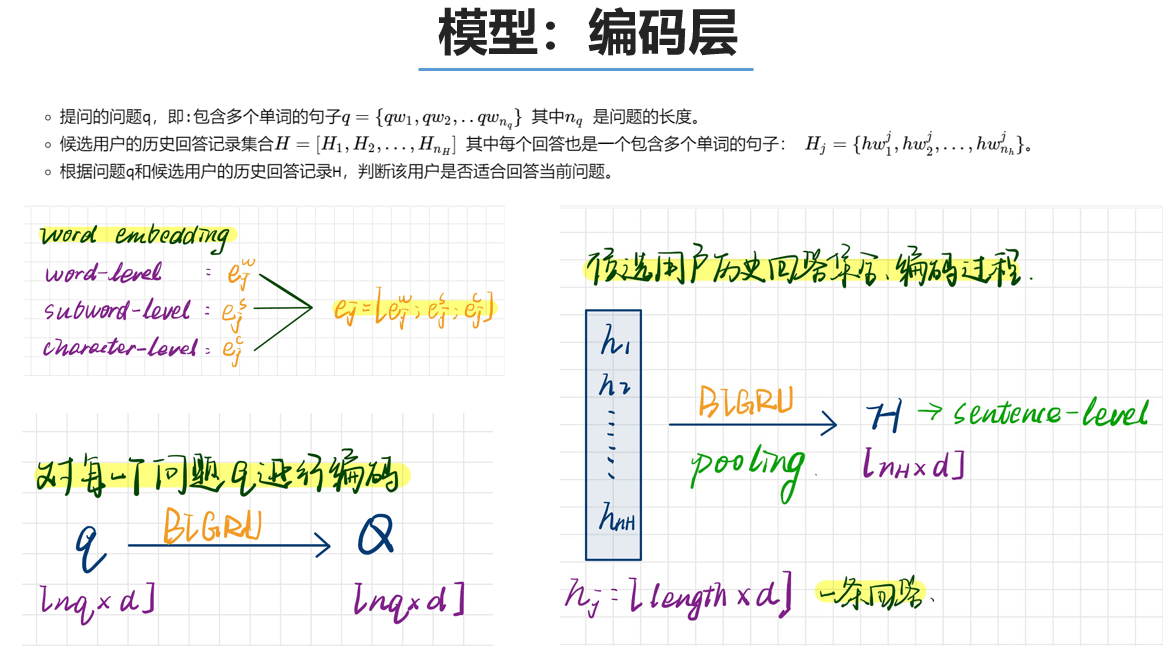 模型：编码层
提问的问题q，即:包含多个单词的句子q = {qw_1, qw_2, . . qw_{n_q}} 其中n_q 是问题的长度。
候选用户的历史回答记录集合H = [H_1, H_2, . . . , H_{n_H}] 其中每个回答也是一个包含多个单词的句子： H_j = {hw_1^j, hw_2^j, . . . , hw_{n_h}^j}。
根据问题q和候选用户的历史回答记录H，判断该用户是否适合回答当前问题。
word embedding
word-level : e_j^w
subword-level : e_j^s
character-level : e_j^c
e_j = [e_j^w ; e_j^s ; e_j^c]
对每一个问题q进行编码
q BIGRU Q
[nq × d] [nq × d]
候选用户历史回答集合、编码过程.
h_1
h_2
h_{nH}
BIGRU
pooling.
H → sentence-level
[n_H × d]
h_j = [length × d] 一条回答.